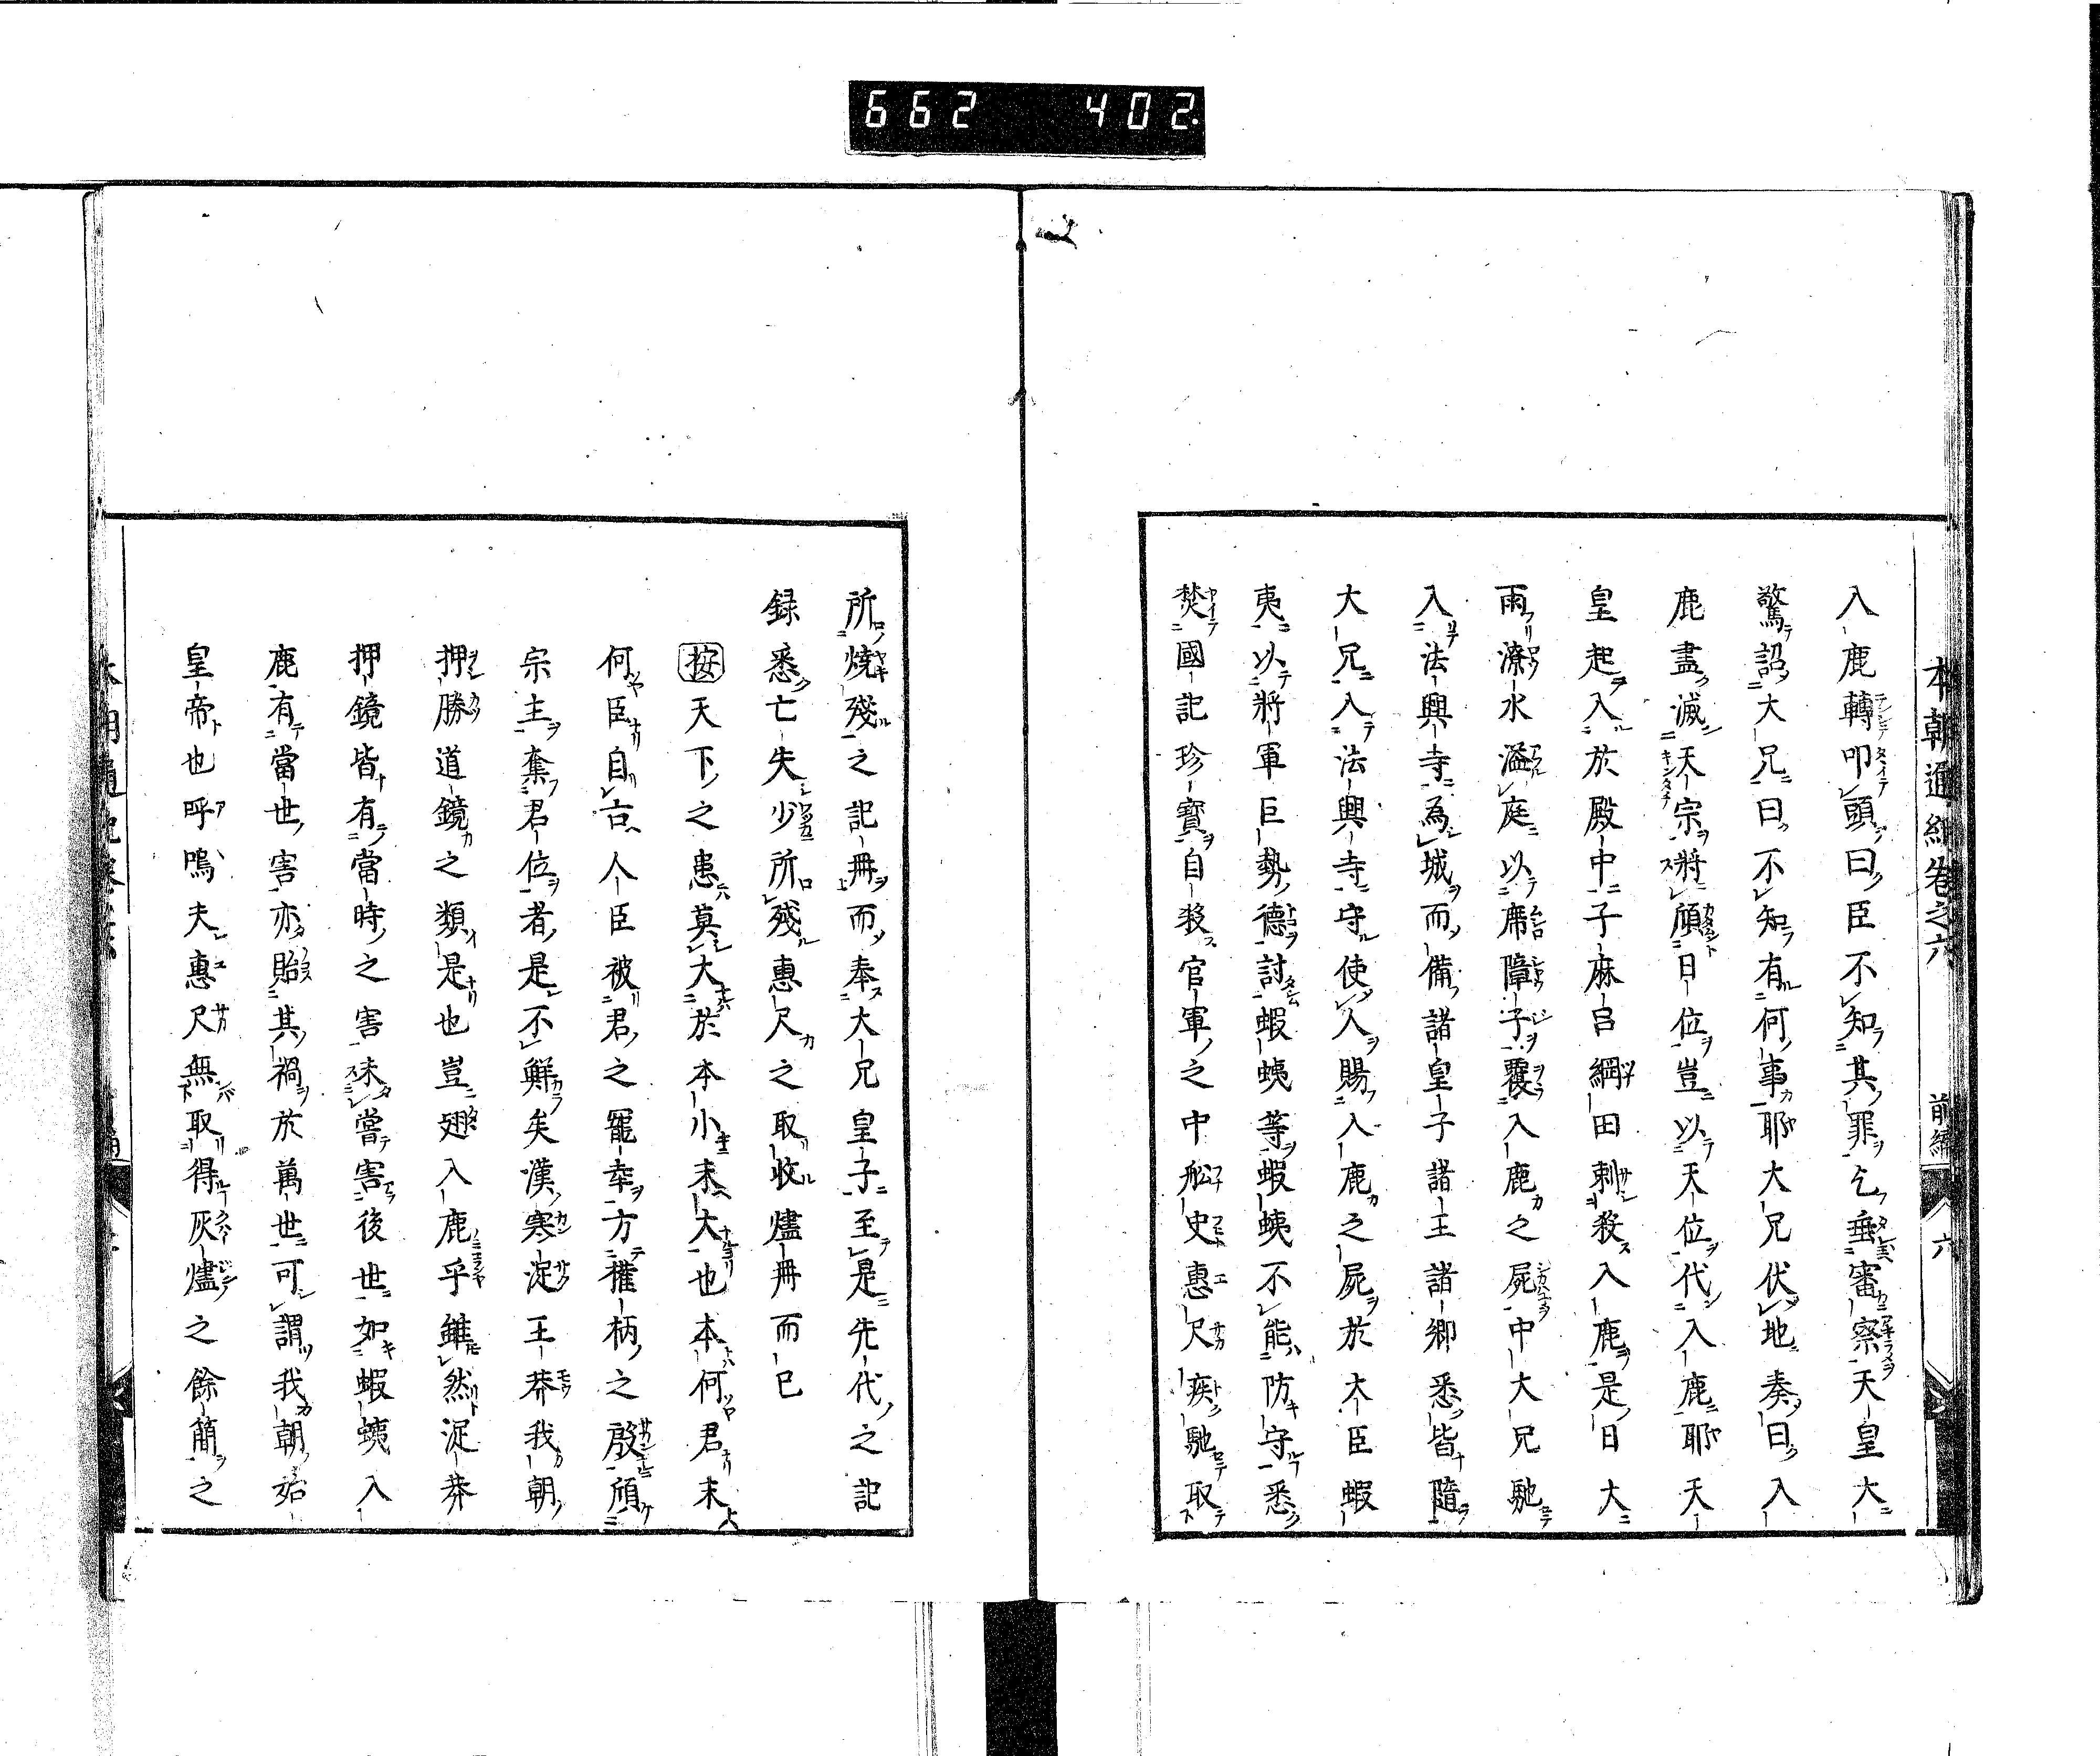 662 402.
本朝通紀卷之六 前編 六
入鹿轉叩頭曰臣不知其罪乞垂審察天皇大
驚詔大兄曰不知有何事耶大兄伏地奏曰入
鹿盡滅天宗將頃日位豈以天位代入鹿耶天
皇起入於殿中子麻呂綱田刺殺入鹿是日大
雨潦水溢庭以席障子覆入鹿之屍中大兄馳
入法興寺為城而備諸皇子諸王諸卿悉皆隨
大兄入法興寺守使人賜入鹿之屍於大臣蝦
夷以將軍巨勢德討蝦蛦等蝦蛦不能防守悉
焚國記珍寶自殺官軍之中舩史惠尺疾馳取
所燒殘之記冊而奉大兄皇子至是先代之記
録悉亡失少所殘惠尺之取收燼冊而已
按天下之患莫大於本小末大也本何君末
何臣自古人臣被君之寵幸方權柄之殷頎
宗主奪君位者是不鮮矣漢寒浞王莽我朝
押勝道鏡之類是也豈翅入鹿乎雖然浞莽
押鏡皆有當時之害未嘗害後世如蝦蛦入
鹿有當世害亦貽其禍於萬世可謂我朝始
皇帝也呼嗚夫惠尺無取得灰燼之餘簡之